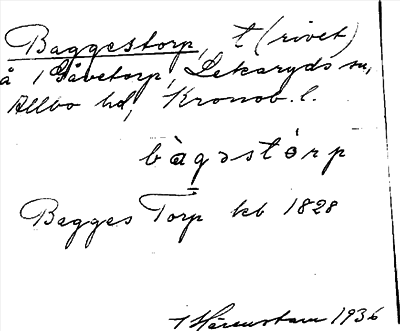 Baggestorp, t (rivet)
å 1 Gåvetorp, Lekaryds sn,
Allbo hd, Kronob. l.
bàgəstórp
Bagges Torp kb 1828
1936